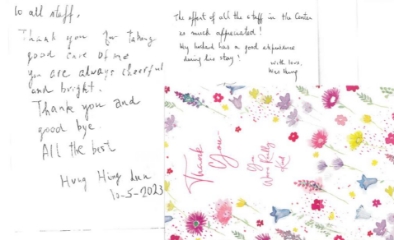 to all staff,
Thank you for taking
good care of me
you are always cheerful
and bright.
Thank you and
good bye
All the best
Hung Hing
12-5-2023
The effort of all the staff in the Center
so much appreciated!
My husband has a good experience
during her stay!
with love,
Thank
You
You
Were Really
Kind